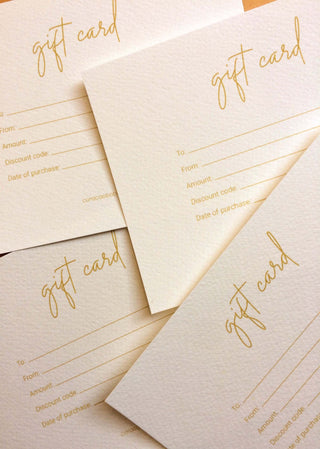 gift card
To:
From:
Amount:
Discount code:
Date of purchase:
gift card
To:
From:
Amount:
Discount code:
Date of purchase:
gift card
To:
From:
Amount:
Discount code:
Date of purchase:
gift card
To:
From:
Amount:
Discount code:
Date of purchase: